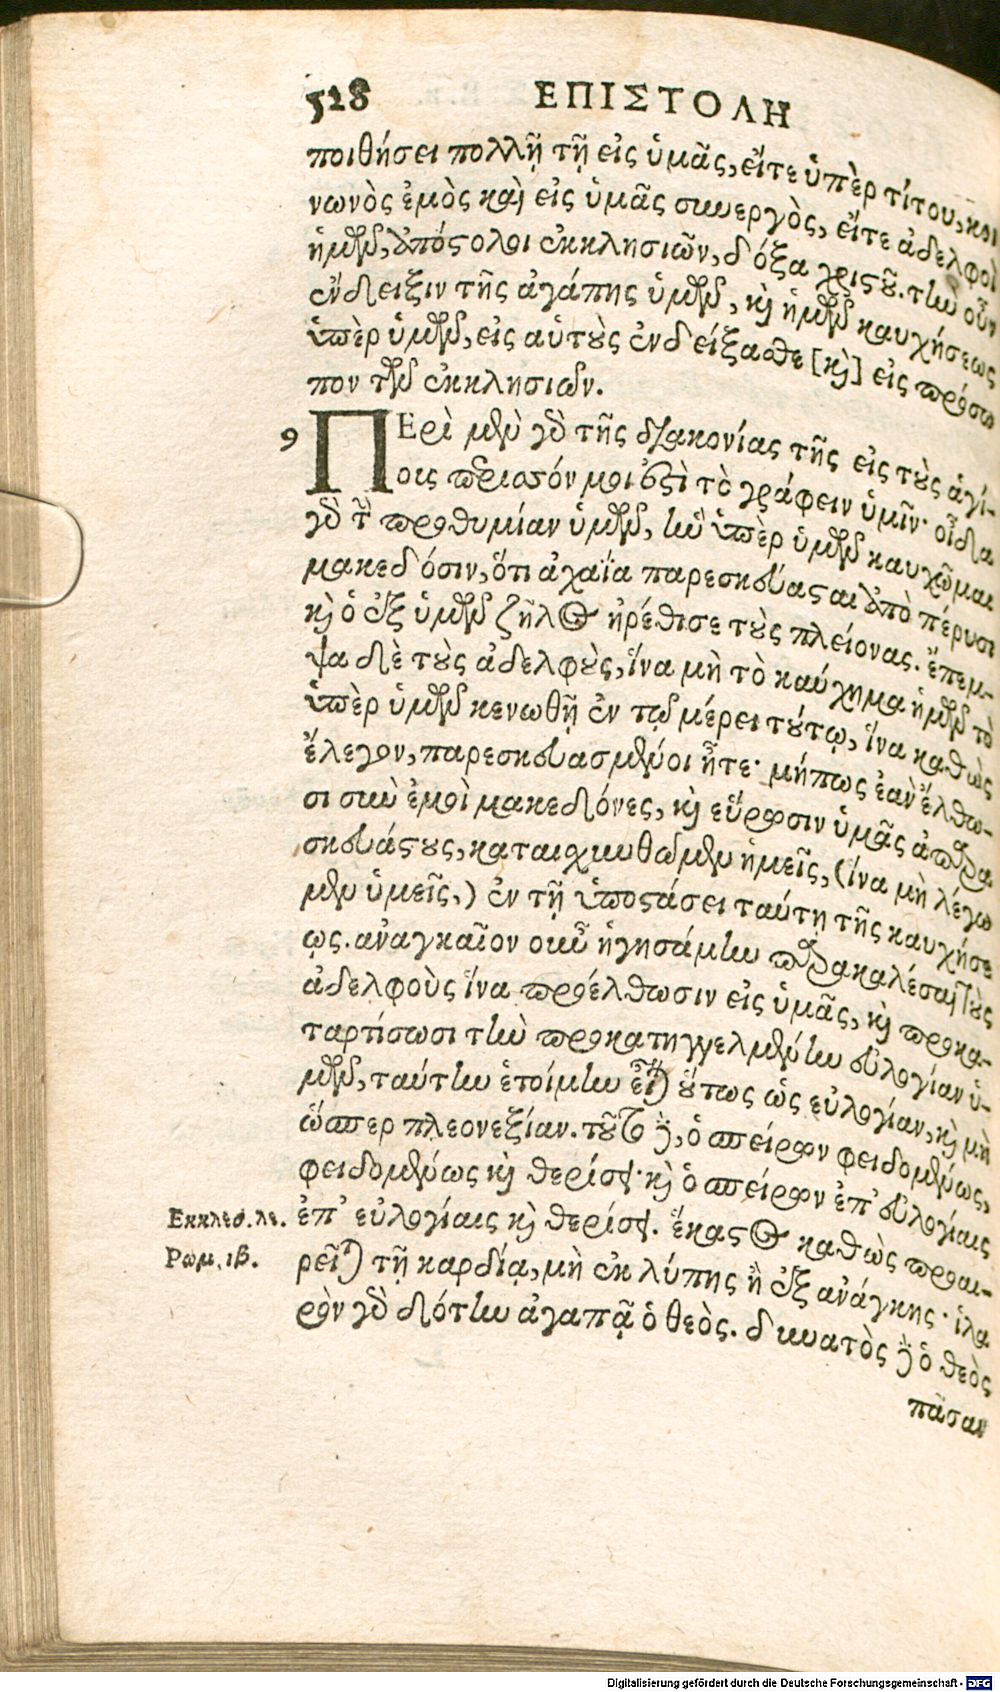 528 ΕΠΙΣΤΟΛΗ
ποιθήσει πολλῇ τῇ εἰς ὑμᾶς, εἴτε ὑπὲρ τίτου, κοι
νωνὸς ἐμὸς καὶ εἰς ὑμᾶς συνεργὸς, εἴτε ἀδελφοὶ
ἡμῶν, ἀπόστολοι ἐκκλησιῶν, δόξα χριστοῦ. τὴν οὖν
ἔνδειξιν τῆς ἀγάπης ὑμῶν, καὶ ἡμῶν καυχήσεως
ὑπὲρ ὑμῶν, εἰς αὐτοὺς ἐνδείξασθε [καὶ] εἰς πρόσω
πον τῶν ἐκκλησιῶν.
9 ΠΕρὶ μὲν γὰρ τῆς διακονίας τῆς εἰς τοὺς ἁγί-
οις περισσόν μοι ἐστὶ τὸ γράφειν ὑμῖν· οἶδα
γὰρ τὴν προθυμίαν ὑμῶν, ἣν ὑπὲρ ὑμῶν καυχῶμαι
μακεδόσιν, ὅτι ἀχαΐα παρεσκεύασται ἀπὸ πέρυσι
καὶ ὁ ἐξ ὑμῶν ζῆλος ἠρέθισε τοὺς πλείονας. ἔπεμ-
ψα δὲ τοὺς ἀδελφοὺς, ἵνα μὴ τὸ καύχημα ἡμῶν τὸ
ὑπὲρ ὑμῶν κενωθῇ ἐν τῷ μέρει τούτῳ, ἵνα καθὼς
ἔλεγον, παρεσκευασμένοι ἦτε· μήπως ἐὰν ἔλθω-
σι σὺν ἐμοὶ μακεδόνες, καὶ εὕρωσιν ὑμᾶς ἀπαρα
σκευάστους, καταισχυνθῶμεν ἡμεῖς, (ἵνα μὴ λέγω
μεν ὑμεῖς,) ἐν τῇ ὑποστάσει ταύτῃ τῆς καυχήσε
ως. ἀναγκαῖον οὖν ἡγησάμην παρακαλέσαι τοὺς
ἀδελφοὺς ἵνα προέλθωσιν εἰς ὑμᾶς, καὶ προκα-
ταρτίσωσι τὴν προκατηγγελμένην εὐλογίαν ὑ-
μῶν, ταύτην ἑτοίμην εἶναι οὕτως ὡς εὐλογίαν, καὶ μὴ
ὥσπερ πλεονεξίαν. τοῦτο δὲ, ὁ σπείρων φειδομένως,
φειδομένως καὶ θερίσει· καὶ ὁ σπείρων ἐπ᾽ εὐλογίαις
Εκκλεσ. λε. ἐπ᾽ εὐλογίαις καὶ θερίσει. ἕκαστος καθὼς προαι-
Ρωμ. ιβ. ρεῖται τῇ καρδίᾳ, μὴ ἐκ λύπης ἢ ἐξ ἀνάγκης· ἱλα
ρὸν γὰρ δότην ἀγαπᾷ ὁ θεὸς. δυνατὸς δὲ ὁ θεὸς
πᾶσαν
Digitalisierung gefördert durch die Deutsche Forschungsgemeinschaft - DFG